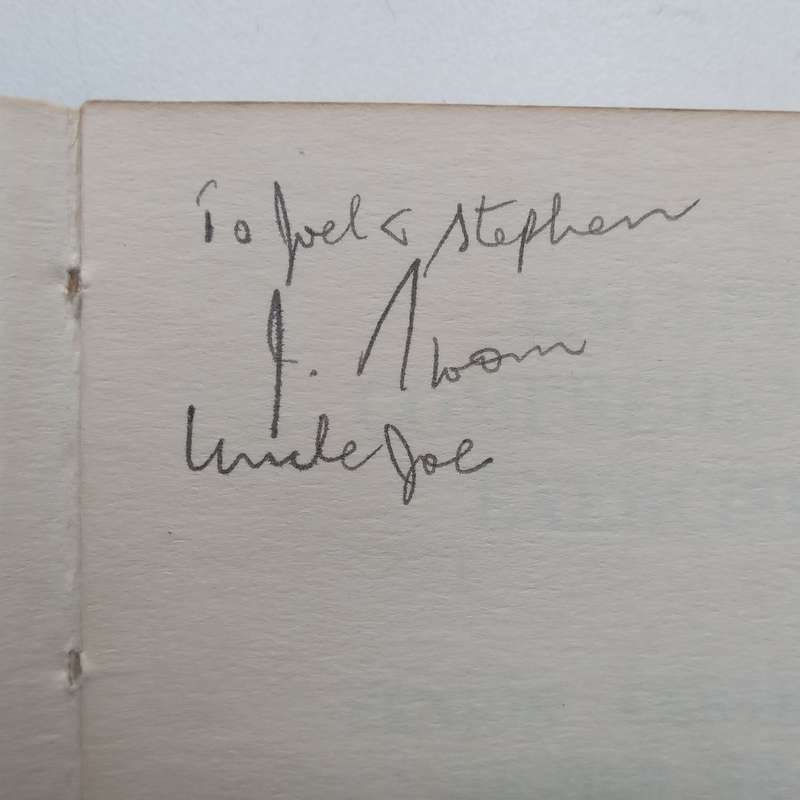 To Joel & Stephen
J.
Uncle Joe